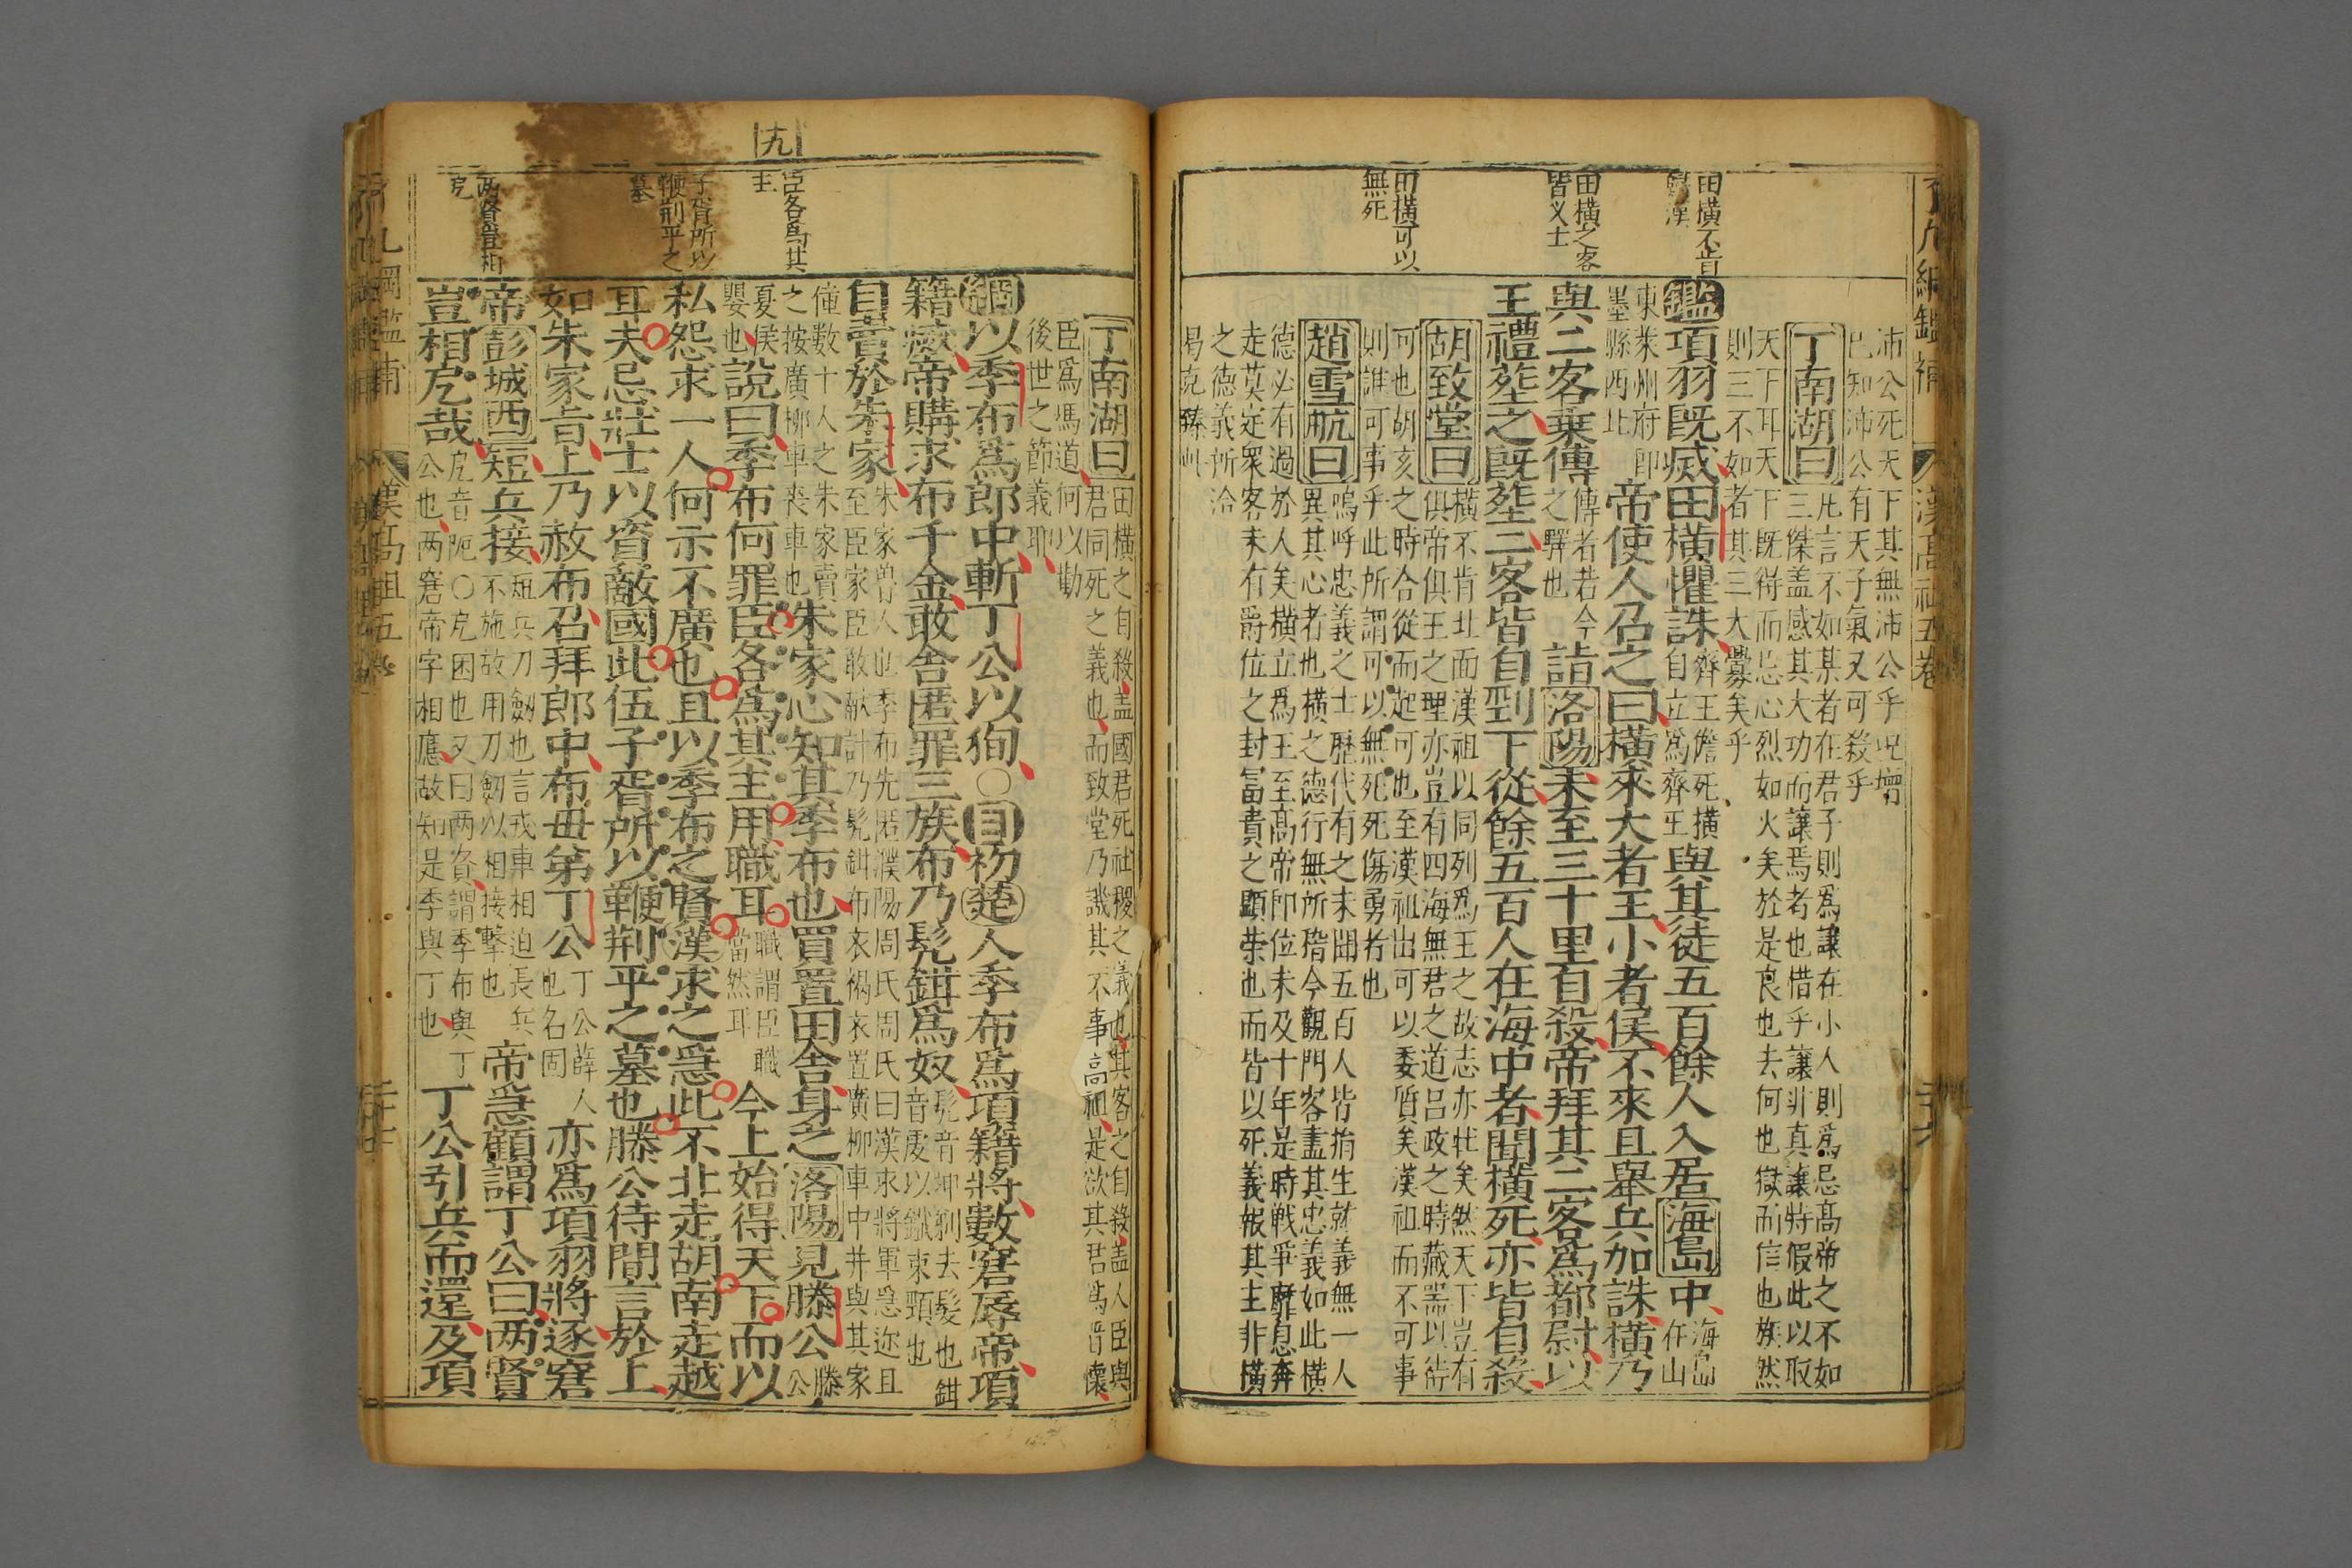 了凡綱鑑補
漢高祖五卷
田橫不肯
田橫之客
皆义士
田橫可以
無死
沛公死天下其無沛公乎况增
已知沛公有天子氣又可殺乎
丁南湖曰
凡言不如某者在君子則為讓在小人則為忌高帝之不如
三傑盖感其大功而讓焉者也惜乎讓非真讓特假此以取
天下耳天下既得而忌心烈如火矣於是良也去何也獄而信也族然
則三不如者其三大釁矣乎
鑑項羽既滅田橫懼誅
齊王儋死橫
自立為齊王
與其徒五百餘人入居海島中
海島
在山
東萊州府即
墨縣西北
帝使人召之曰橫來大者王小者侯不來且舉兵加誅橫乃
與二客乗傳
傳者若今
之驛也
詣洛陽未至三十里自殺帝拜其二客為都尉以
王禮塟之既塟二客皆自剄下從餘五百人在海中者聞橫死亦皆自殺
胡致堂曰
橫不肯北面漢祖以同列為王之故志亦壮矣然天下豈有
俱帝俱王之理亦豈有四海無君之道吕政之時藏噐以待
可也胡亥之時合從而起可也至漢祖出可以委質矣漢祖而不可事
則誰可事乎此所謂可以無死死傷勇者也
趙雪航曰
嗚呼忠義之士歷代有之未聞五百人皆捐生就義無一人
異其心者也橫之德行無所稽今觀門客盡其忠義如此橫
德必有過於人矣橫立為王至高帝即位未及十年是時戦爭靡息奔
走莫定眾客未有爵位之封富貴之顕荣也而皆以死義報其主非橫
之德義所洽
曷克臻此
九
臣各為其
主
子胥所以
鞭荆平之
墓
两賢豈相
戹
丁南湖曰
田橫之自殺盖國君死社稷之義也其客之自殺盖人臣與
君同死之義也而致堂乃譏其不事高祖是欲其君為晉懷
臣為馮道何以勸
後世之節義耶
綱以季布為郎中斬丁公以狥○目初楚人季布為項籍將數窘辱帝項
籍滅帝購求布千金敢舍匿罪三族布乃髡鉗為奴
髡音坤剃去髮也鉗
音虔以鐵束頸也
自賣於朱家
朱家曽人也季布先匿濮陽周氏周氏曰漢求將軍急迹且
至臣家臣敢献計乃髡鉗布衣褐衣置廣柳車中并與其家
僮数十人之朱家賣
之按廣柳車丧車也
朱家心知其季布也買置田舍身之洛陽見滕公
滕
公
夏侯
嬰也
說曰季布何罪臣各為其主用職耳
職謂臣職
當然耳
今上始得天下而以
私怨求一人何示不廣也且以季布之賢漢求之急此不北走胡南走越
耳夫忌壯士以資敵國此伍子胥所以鞭荆平之墓也滕公待間言於上
如朱家㫖上乃赦布召拜郎中布毋弟丁公
丁公薛人
也名固
亦為項羽將逐窘
帝彭城西短兵接
短兵刀劍也言戎車相迫長兵
不施故用刀劔以相接擊也
帝急顧謂丁公曰两賢
豈相戹哉
戹音阨○戹困也又曰两賢謂季布與丁
公也两窘帝字相應故知是季與丁也
丁公引兵而還及項
漢高祖五卷